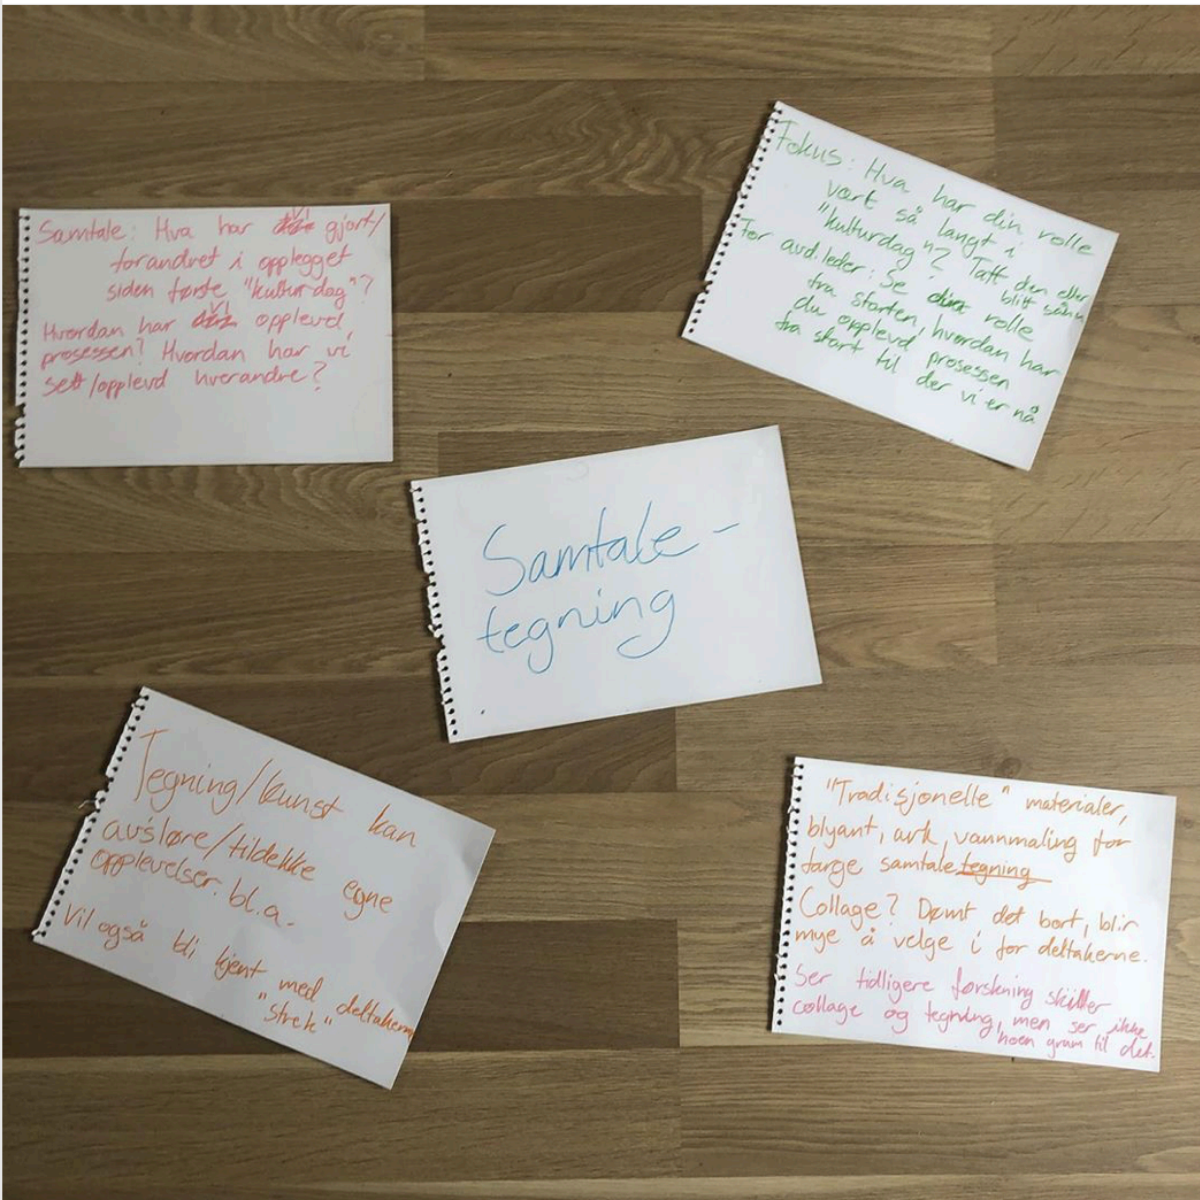 Samtale: Hva har vi gjort/
forandret i opplegget
siden første "kulturdag"?
Hvordan har vi opplevd
prosessen? Hvordan har vi
sett/opplevd hverandre?
Fokus: Hva har din rolle
vært så langt i
"kulturdag'n? Tatt den eller
blitt sånn
For avd.leder: Se din rolle
fra starten, hvordan har
du opplevd prosessen
fra start til der vi er nå
Samtale-
tegning
Tegning/kunst kan
avsløre/tildekke egne
opplevelser. bl.a.
Vil også bli kjent med deltakerne
"strek"
"Tradisjonelle" materialer,
blyant, ark vannmaling for
farge samtaletegning
Collage? Dømt det bort, blir
mye å velge i for deltakerne.
Ser tidligere forskning skiller
collage og tegning, men ser ikke
noen grunn til det.